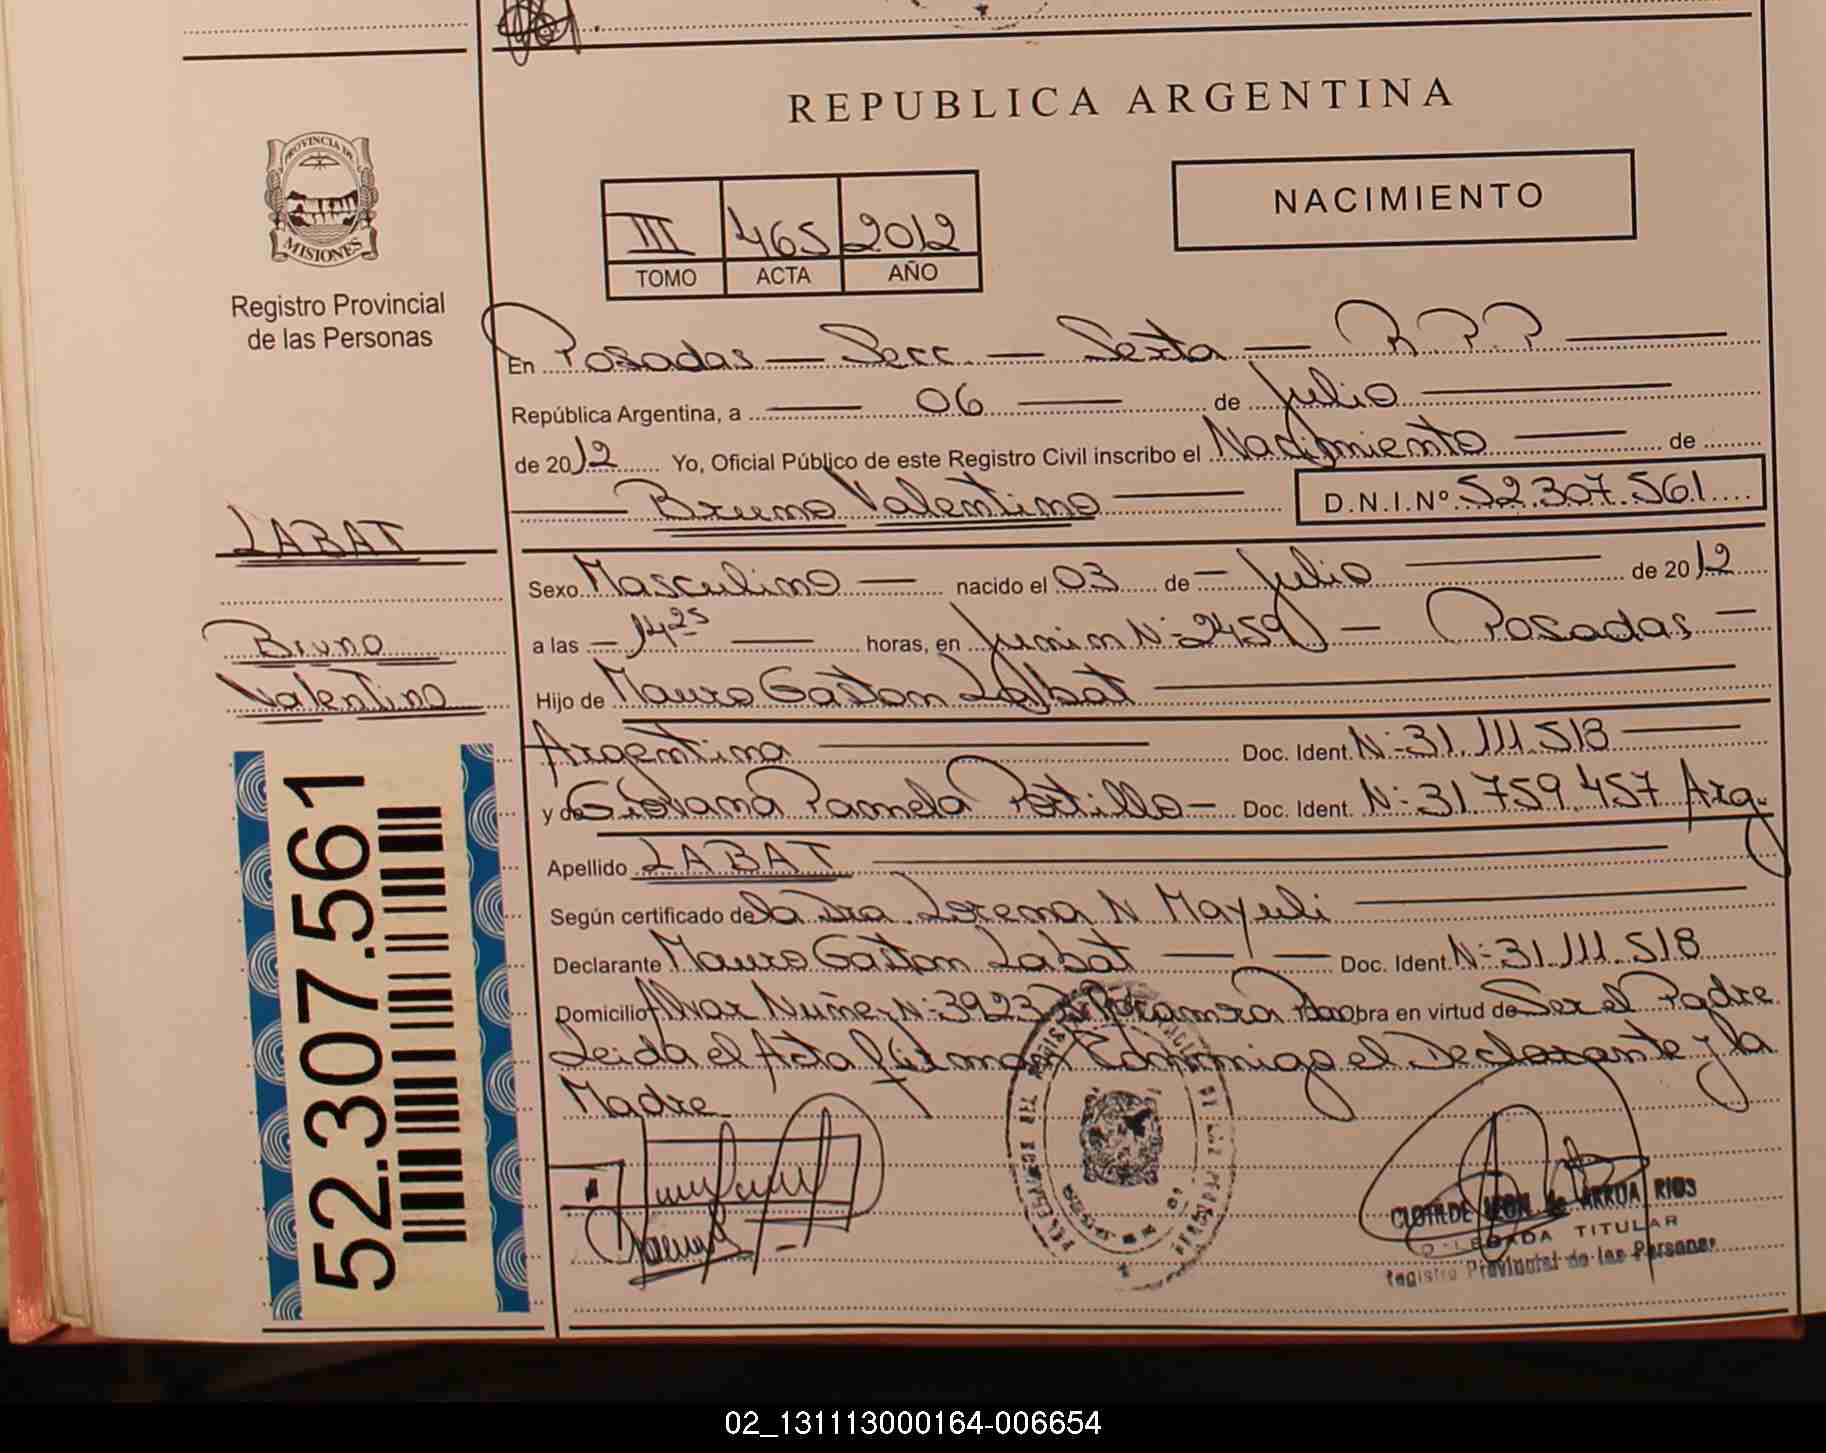 REPUBLICA ARGENTINA
PROVINCIA DE
MISIONES
Registro Provincial
de las Personas
NACIMIENTO
III 465 2012
TOMO ACTA AÑO
En Posadas — Secc. — Sexta — R.P.P
República Argentina, a — 06 — de Julio
de 2012 Yo, Oficial Público de este Registro Civil inscribo el Nacimiento — de
Bruno Valentino — D.N.I.Nº 52.307.561
LABAT
Bruno
Valentino
52.307.561
Sexo Masculino — nacido el 03 de — Julio — de 2012
a las — 14 25 — horas, en Junin N:2459 — Posadas —
Hijo de Mauro Gaston Labat
Argentina — Doc. Ident. N:31.111.518
y de Giovana Pamela Portillo — Doc. Ident. N:31.759.457 Arg.
Apellido LABAT
Según certificado de la Dra Lorena N Mayuli
Declarante Mauro Gaston Labat — Doc. Ident. N:31.111.518
Domicilio Alvar Nuñez N:3923 obra en virtud de Ser el Padre
Leida el Acta firman Conmigo el Declarante y la
Madre
CLOTILDE LEON de ARRUA RIOS
DELEGADA TITULAR
Registro Provincial de las Personas
02_131113000164-006654